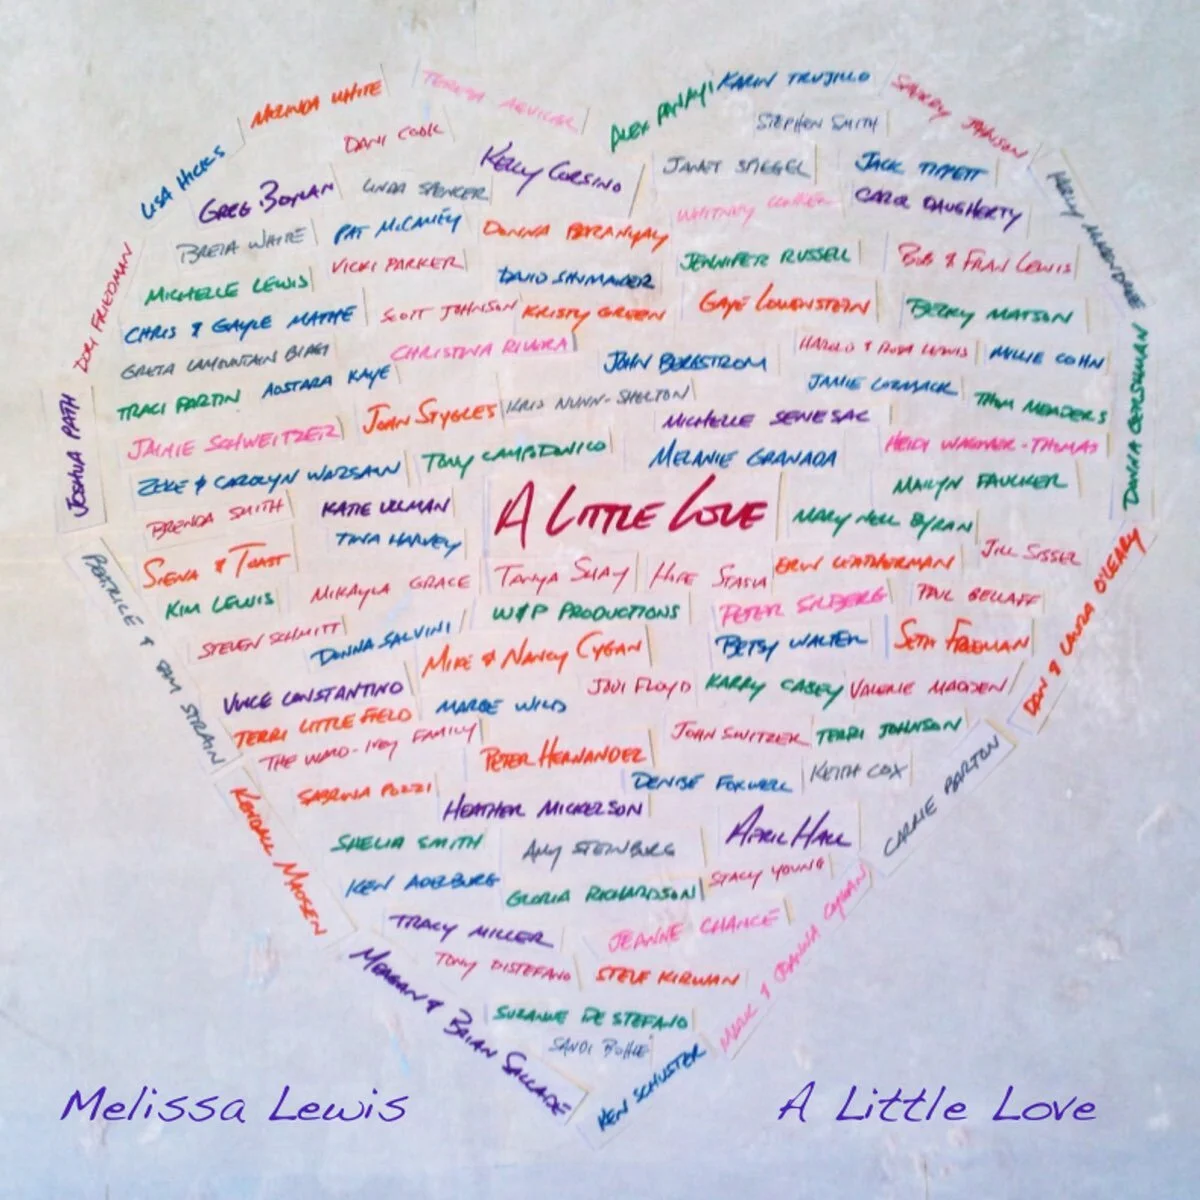 MERINDA WHITE
TERESA AGUILAR
ALEX PANAYI
KARIN TRUJILLO
SANDY JOHNSON
STEPHEN SMITH
DANI COOK
LISA HICKS
KELLY CORSINO
JANET SPIEGEL
JACK TIPPETT
GREG BOMAN
LINDA SPENCER
WHITNEY
CAROL DAUGHERTY
BRETA WHITE
PAT McCAULEY
DONNA
JENNIFER RUSSELL
BOB & FRAN LEWIS
DORI FRIEDMAN
VICKI PARKER
DAVID SHUMAKER
MICHELLE LEWIS
GAYE LOWENSTEIN
BECKY MATSON
CHRIS & GAYLE MATHE
SCOTT JOHNSON
KRISTY GREEN
GRETA LAMOUNTAIN BIAGI
CHRISTINA RIVERA
JOHN BERGSTROM
HAROLD & ROSA LEWIS
MILLIE COHN
DANNA GERSHMAN
TRACI PARTIN
AOSTARA KAYE
JAMIE CORMACK
THOM MEADERS
JOSHUA PATH
JOAN STYGLES
KRIS NUNN-SHELTON
MICHELLE SENESAC
JAIMIE SCHWEITZER
HEIDI WAGONER-THOMAS
TONY CAMPODONICO
MELANIE GRANADA
ZEKE & CAROLYN
MAILYN FAULKER
BRENDA SMITH
KATIE ULLMAN
A LITTLE LOVE
MARY NELL BYRAN
TINA HARVEY
JILL SISSEL
SIENA & TOAST
MIKAYLA GRACE
TANYA SHAY
HIPE STASIA
ERIN WEATHERMAN
KIM LEWIS
W&P PRODUCTIONS
PETER SILBERG
PAUL BELLAFF
DAN & LAURA O'LEARY
BEATRICE & SAM STRAIN
STEVEN SCHMITT
DONNA SALVINI
MIKE & NANCY CYGAN
BETSY WALTER
SETH FREEMAN
VINCE CONSTANTINO
MARGE WILD
JODI FLOYD
KARRY CASEY
VALERIE MADDEN
TERRI LITTLEFIELD
THE WARD-IVEY FAMILY
PETER HERNANDEZ
JOAN SWITZER
TERRI JOHNSON
SABRINA POZZI
DENISE FOXWELL
KEITH COX
CARRIE BARTON
KENDALL MADSEN
HEATHER MICKELSON
APRIL HALL
SHELIA SMITH
AMY STEINBURG
KEN ADELBURG
GLORIA RICHARDSON
STACY YOUNG
TRACY MILLER
JEANNE CHANCE
MARK & DIANNA CYGAN
MEAGAN & BRIAN SALLADE
TONY DISTEFANO
STEVE KIRWAN
SUZANNE DE STEFANO
SANDI
KEN SCHUSTER
Melissa Lewis
A Little Love